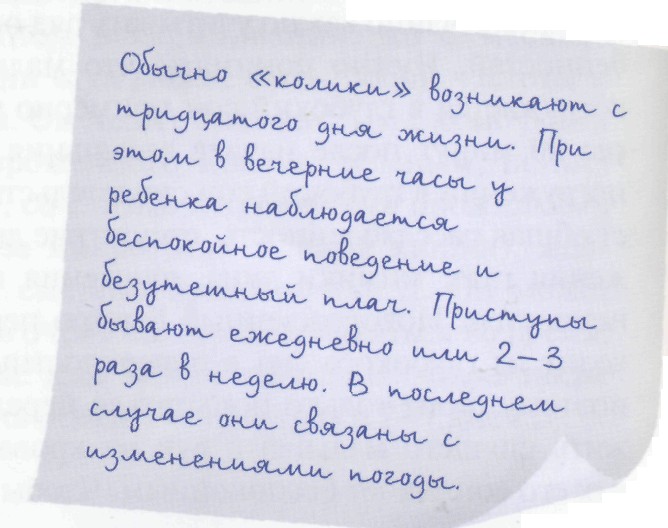 Обычно «колики» возникают с
тридцатого дня жизни. При
этом в вечерние часы у
ребенка наблюдается
беспокойное поведение и
безутешный плач. Приступы
бывают ежедневно или 2–3
раза в неделю. В последнем
случае они связаны с
изменениями погоды.